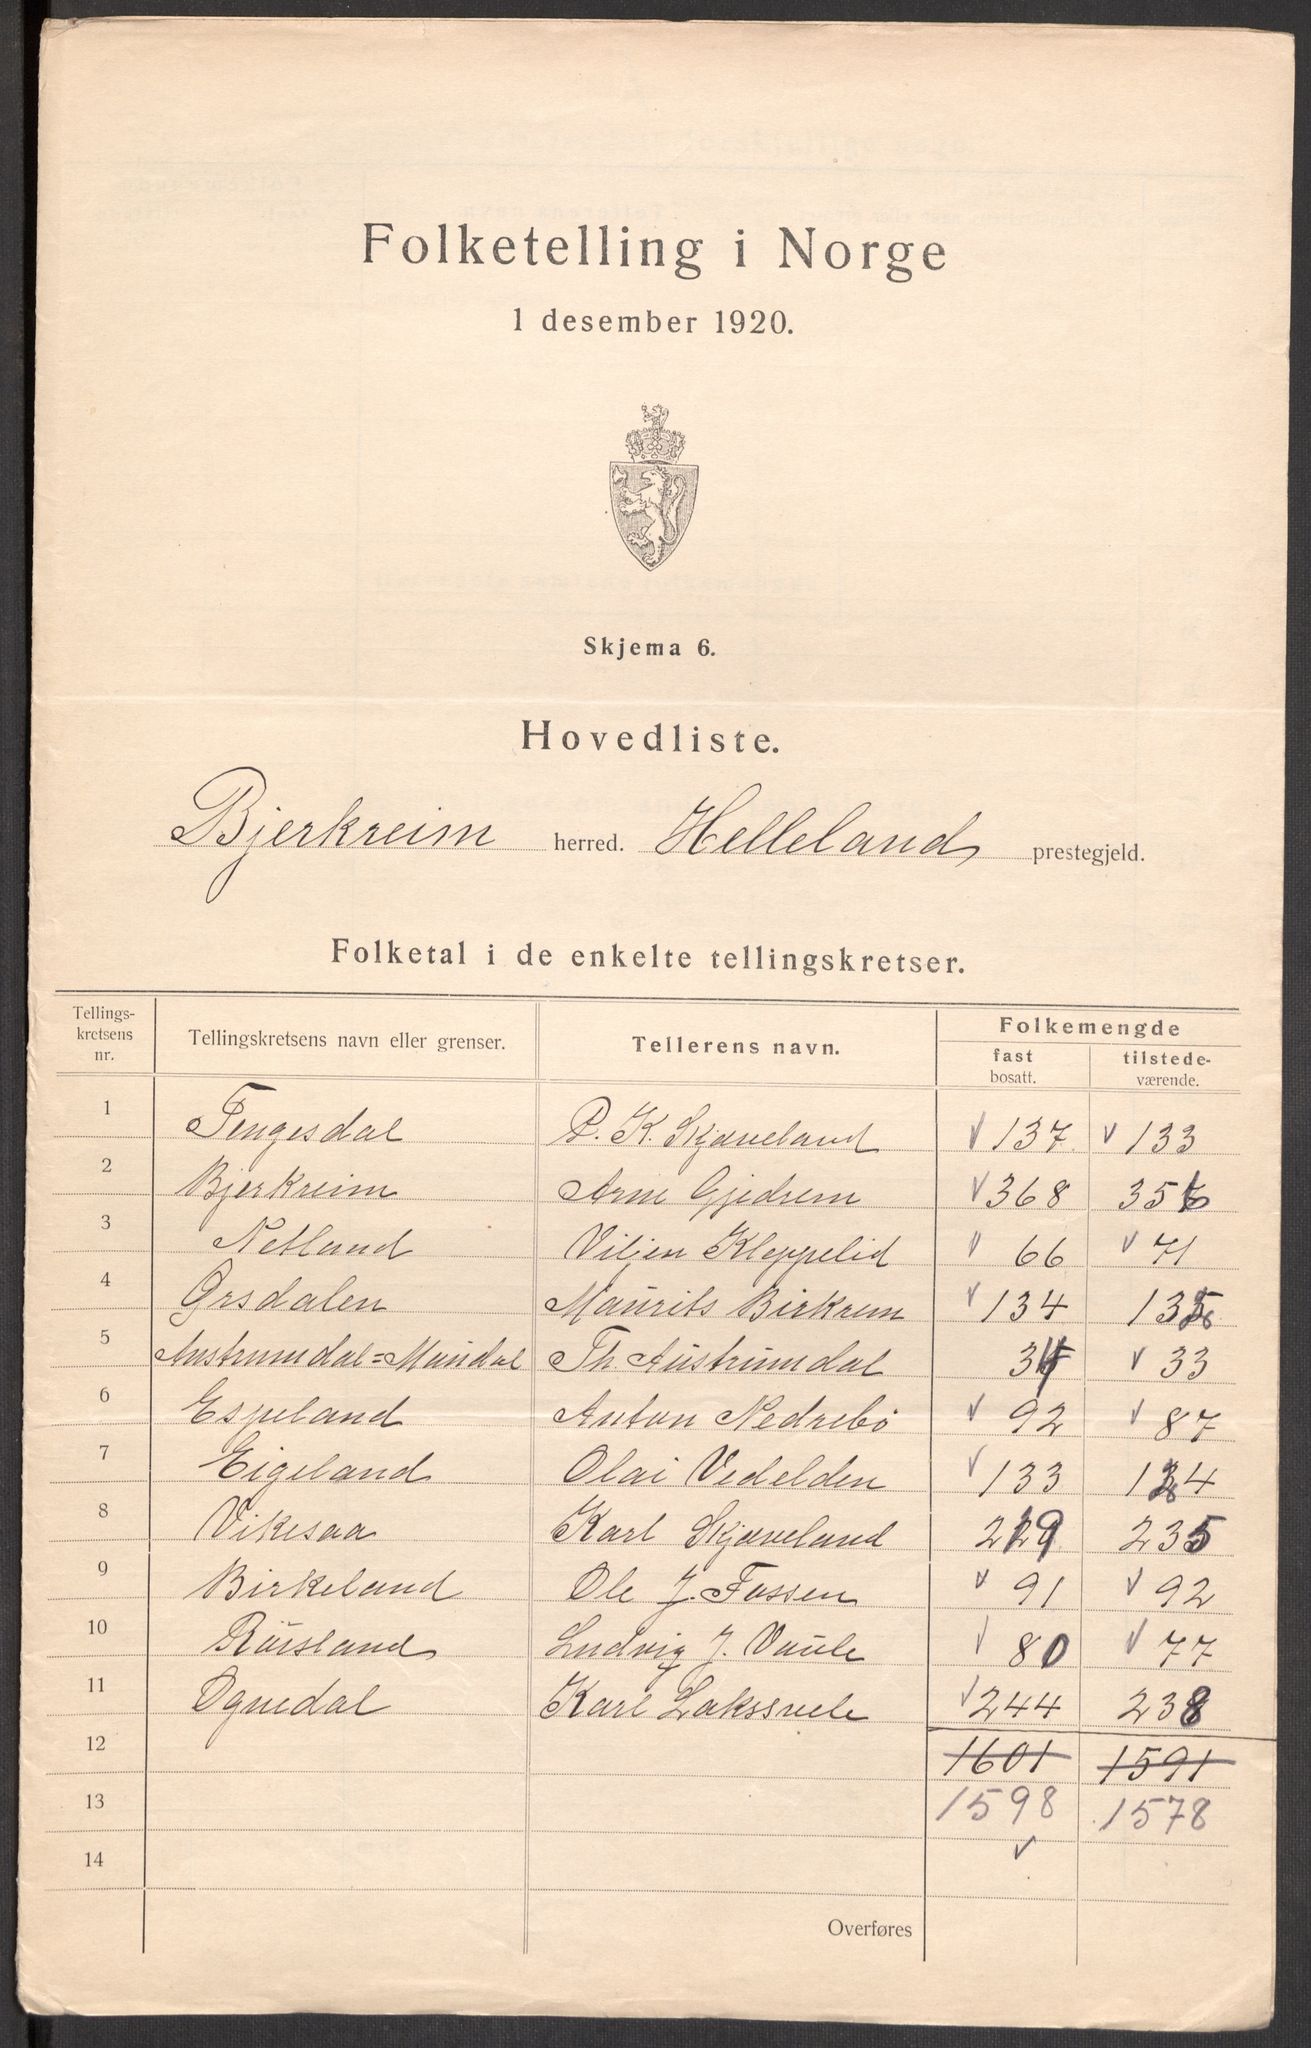 Folketelling i Norge
1 desember 1920.
Skjema 6.
Hovedliste.
Bjerkreim herred. Helleland prestegjeld.
Folketal i de enkelte tellingskretser.
Tellings-
kretsens
nr.
Tellingskretsens navn eller grenser.
Tellerens navn.
Folkemengde
fast
bosatt.
tilstede-
værende.
1 Tengesdal P. K. Skjæveland √ 137 √ 133
2 Bjerkreim Arne Gjedrem √ 368 356
3 Netland Viljen Kleppelid √ 66 √ 71
4 Ørsdalen Maurits Birkrem √ 134
5 Austrumdal=Mundal Th. Austrumdal √ 33
6 Espeland Anton Nedrebø √ 92 √ 87
7 Eigeland Olai Vedelden √ 133
8 Vikesaa Karl Skjæveland 219 235
9 Birkeland Ole J. Fossen √ 91 √ 92
10 Røisland Ludvig J. Vaule √ 80 √ 77
11 Ognedal Karl Lakssvele √ 244 238
12 1601 1591
13 1598 1578
√
14
Overføres